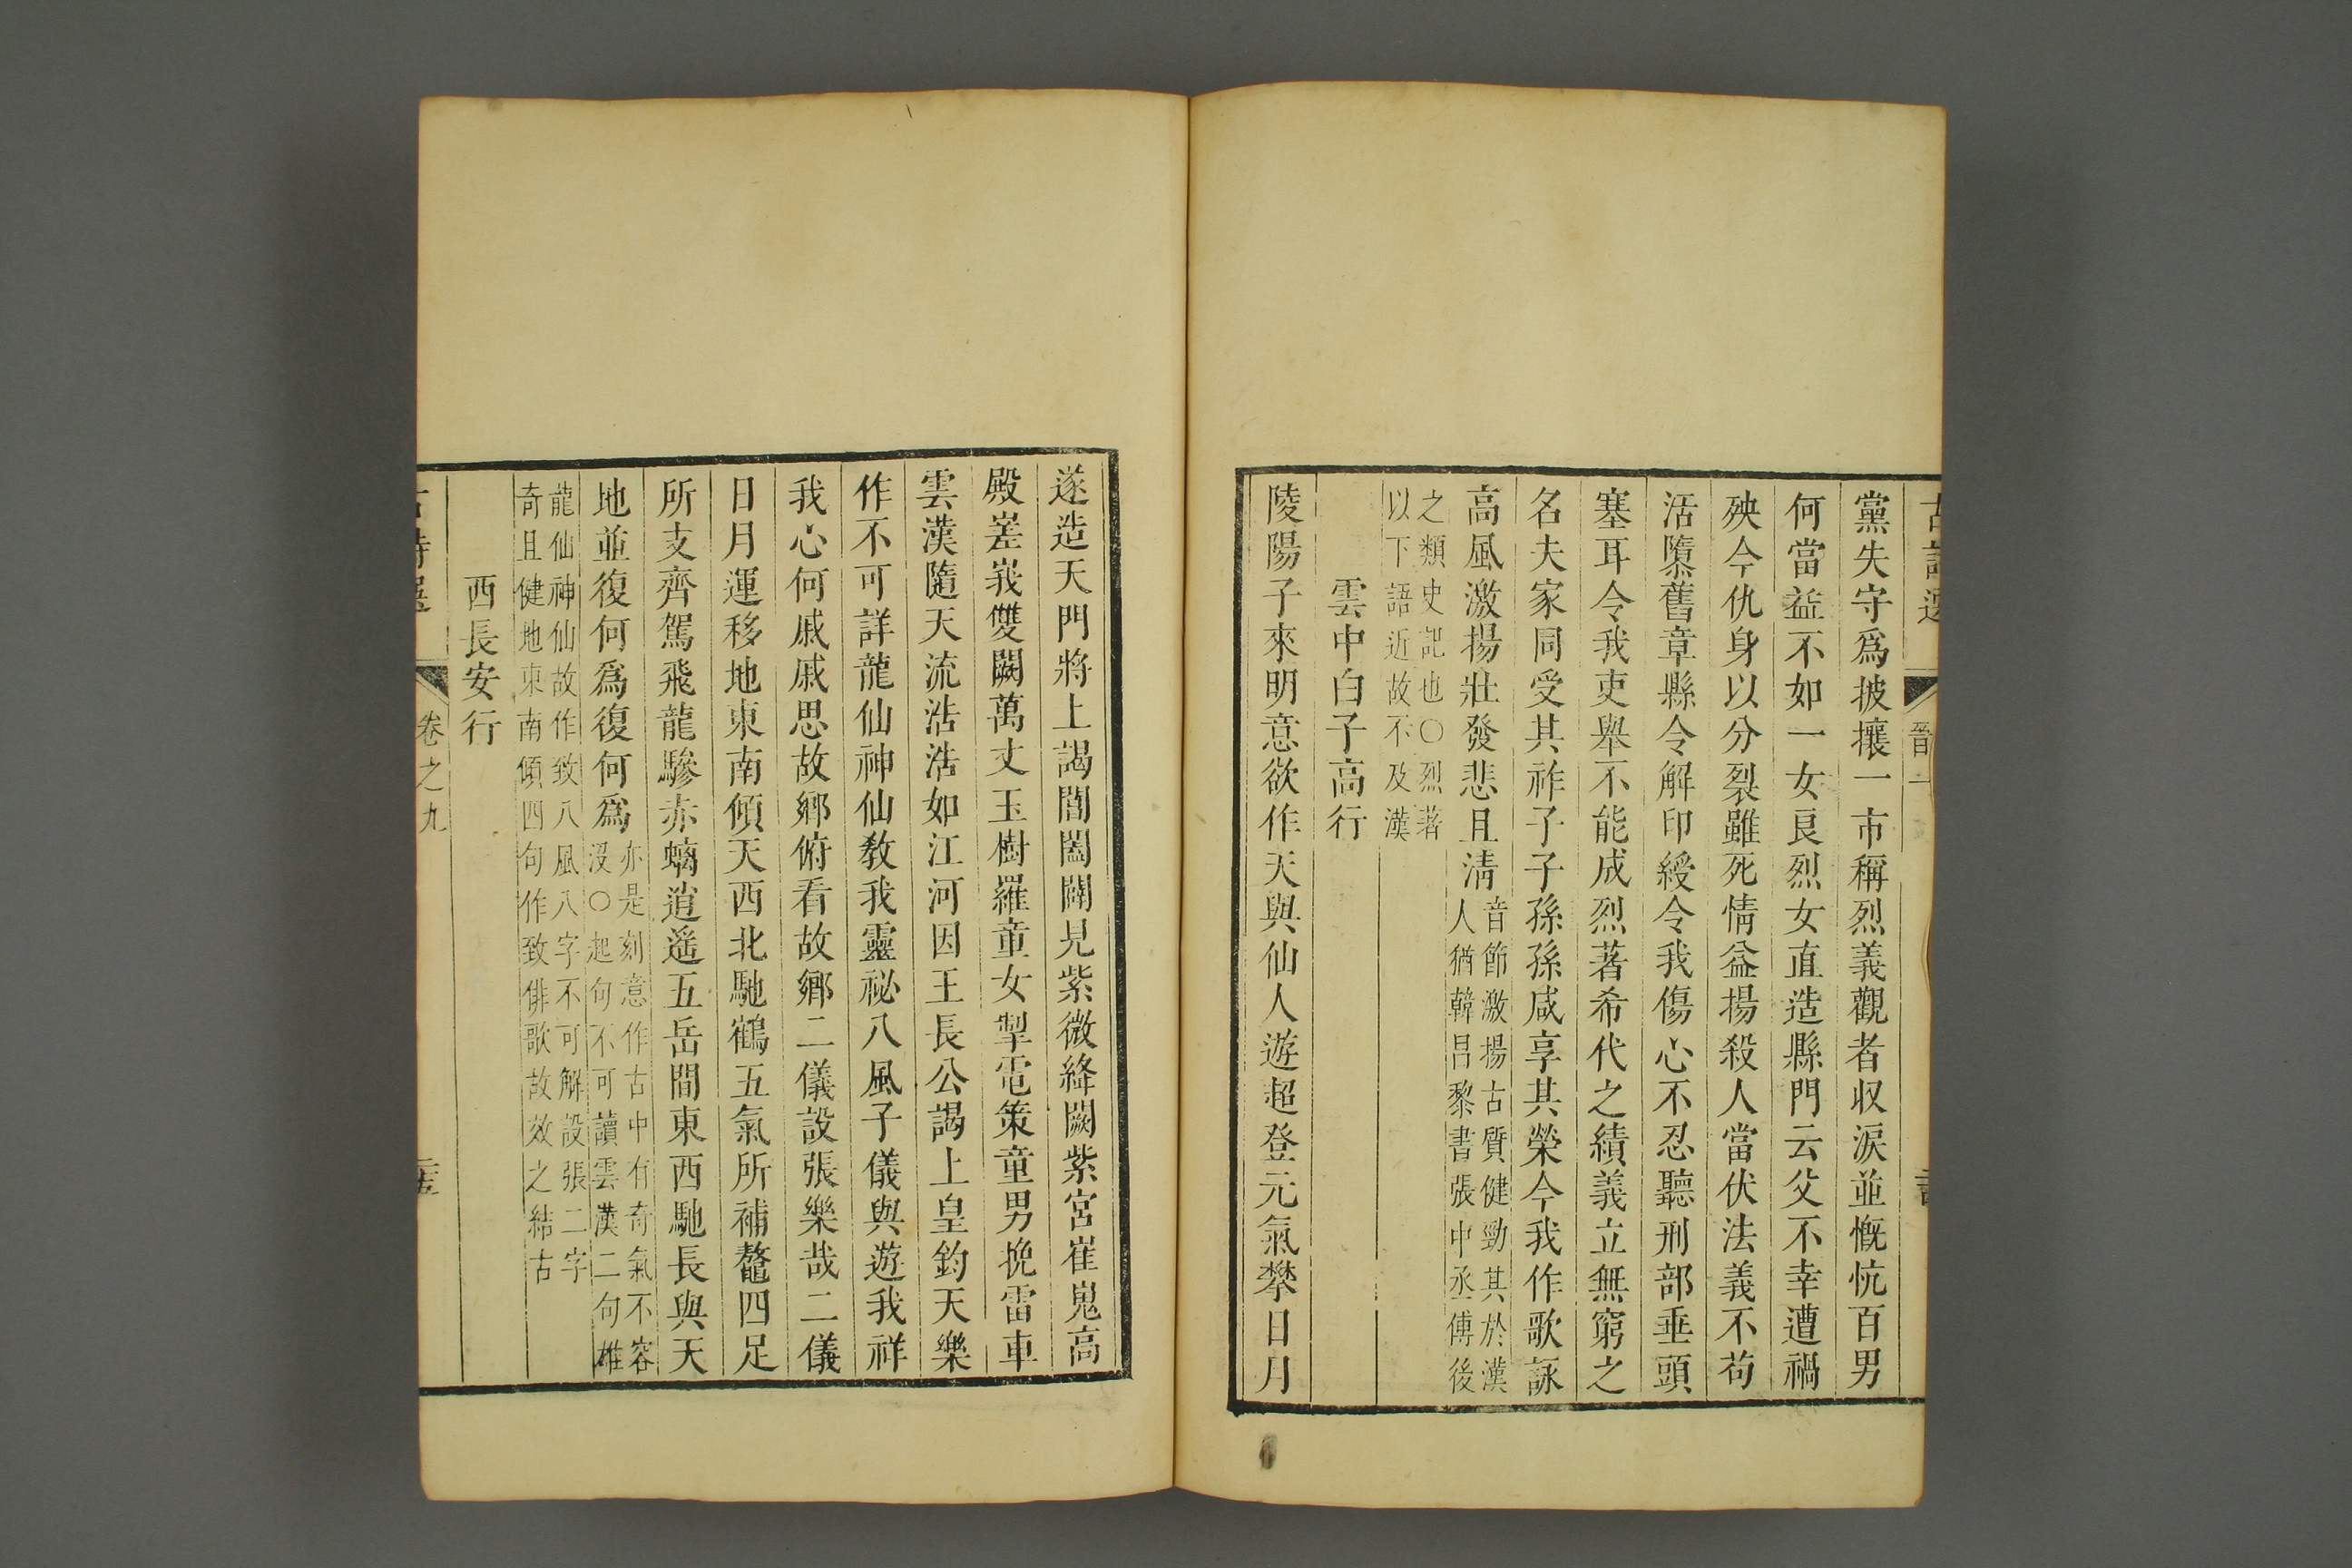 古詩選 晉一
黨失守爲披攘一市稱烈義觀者収淚並慨忼百男
何當益不如一女良烈女直造縣門云父不幸遭禍
殃今仇身以分裂雖死情益揚殺人當伏法義不茍
活隳舊章縣令解印綬令我傷心不忍聽刑部垂頭
塞耳令我吏舉不能成烈著希代之績義立無窮之
名夫家同受其祚子子孫孫咸享其榮今我作歌詠
高風激揚壯發悲且清
音節激揚古質健勁其於漢
人猶韓昌黎書張中丞傅後
之類史記也〇烈著
以下語近故不及漢
雲中白子高行
陵陽子來明意欲作天與仙人遊超登元氣攀日月
遂造天門將上謁閶闔闢見紫微絳闕紫宮崔嵬高
殿嵳峩雙闕萬丈玉樹羅童女掣電策童男挽雷車
雲漢隨天流浩浩如江河因王長公謁上皇鈞天樂
作不可詳龍仙神仙教我靈祕八風子儀與遊我祥
我心何戚戚思故鄉俯看故鄉二儀設張樂哉二儀
日月運移地東南傾天西北馳鶴五氣所補鼇四足
所支齊駕飛龍驂赤螭逍遙五岳間東西馳長與天
地並復何爲復何爲
亦是刻意作古中有奇氣不容
沒〇起句不可讀雲漢二句雄
龍仙神仙故作致八風八字不可解設張二字
奇且健地東南傾四句作致俳歌故效之結古
西長安行
卷之九